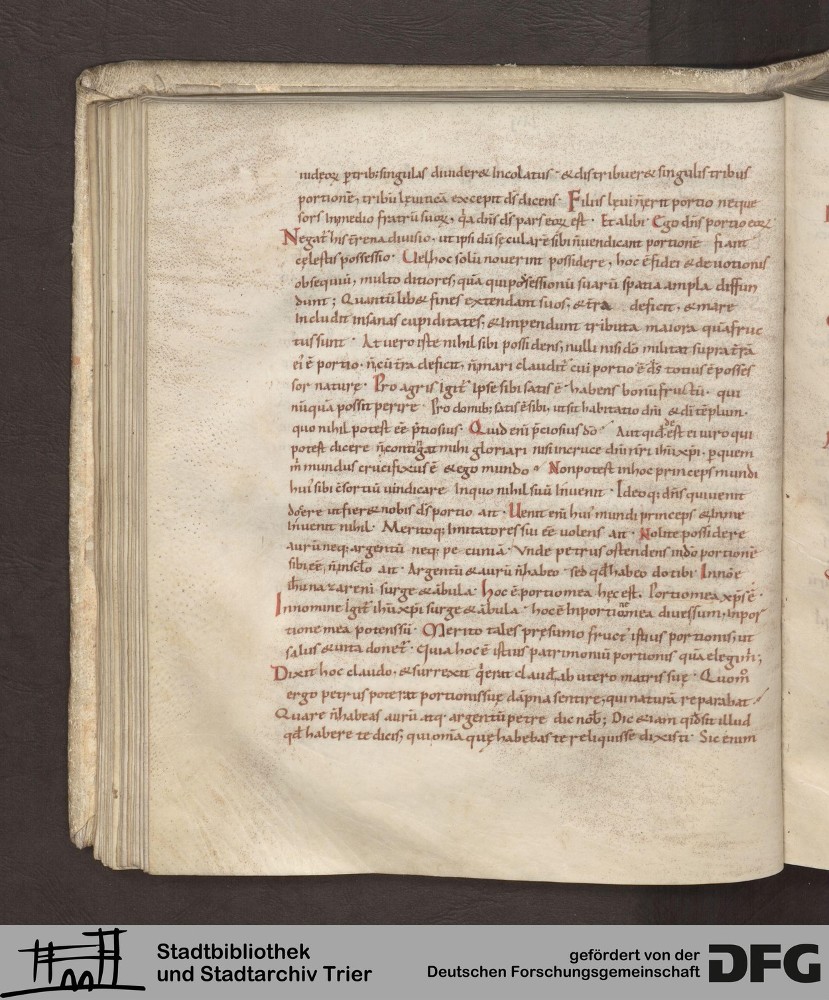 iudęoꝝ ꝑ tribꝰ singulas diuideret Incolatus · & distribueret singulis tribus
portionē, tribū lęuiticā excepit dſ̄ dicens · Filiis lęui ñ erit portio neque
sors In medio fratrū suoꝝ, q̄a dn̄s dſ̄ pars eoꝝ est · Et alibi · Ego dn̄s portio eoꝝ
Negat̄ his t̄rena diuisio, ut ipsi dū sęcularē sibi ñ uendicant portionē fiant
cęlestis possessio · Uel hoc solū nouerint possidere, hoc ē fidei & deuotionis
obsequiū, multo ditiores, quā qui possessionū suarū spatia ampla diffun
dunt; Quantū lib& fines extendant suos, & t̄ra deficit, & mare
Includit insanas cupiditates, & Impendunt tributa maiora quā fruc
tus sunt · At uero iste nihil sibi possidens, nulli nisi dō militat supra t̄rā
ei' ē portio · ñ cū t̄ra deficit, ñ mari claudit̄ cui portio ē dſ̄ totius ē posses
sor naturę · Pro agris Igit̄ Ipse sibi satis ē · habens bonū fructū · qui
nūquā possit perire · Pro domibꝰ satis ē sibi, ut sit habitatio dn̄i & dī tēplum ·
quo nihil potest ēē p̄tiosius · Quid eni p̄ciosius dō · Aut qid de est ei uiro qui
potest dicere ñ contingat mihi gloriari nisi in cruce dn̄i nr̄i ihū xp̄i · ꝑ quem
m̄ mundus crucifixus ē & ego mundo · Non potest in hoc princeps mundi
hui' sibi c̄sortiū uindicare In quo nihil suū Inuenit · Ideo qi dn̄s qui uenit
docere ut fier& nobis dſ̄ portio ait · Uenit eni hui' mundi princeps & In me
Inuenit nihil · Meritoq; Imitatores sui ēē uolens ait · Nolite possidere
aurū neq; argentū neq; pecuniā · Vnde petrus ostendens in dō portionē
sibi ēē, ñ in sc̄lo ait · Argentū & aurū ñ habeo · sed qđ habeo do tibi · In noīe
ihū nazareni surge & ābula · hoc ē portio mea hęc est, Portio mea xp̄s ē ·
In nomine Igit̄ ihū xp̄i surge & ābula · hoc ē In portione mea diuessum, in por
tione mea potens sū · Merito tales presumo fructꝰ istius portionis, ut
salus & uita donet̄ · Quia hoc ē istius patrimoniū portionis quā elegim';
Dixit hoc claudo, & surrexit q̄ erat claudꝰ ab utero matris suę · Quom̊
ergo petrus poterat portionis suę dāpna sentire, qui naturā reparabat ·
Quare ñ habeas aurū atq; argentū petre dic nob̄; Dic etiam qid sit illud
qđ habere te dicis, qui omīa quę habebas te reliquisse dixisti · Sic enim
Stadtbibliothek
und Stadtarchiv Trier
gefördert von der
Deutschen Forschungsgemeinschaft
DFG